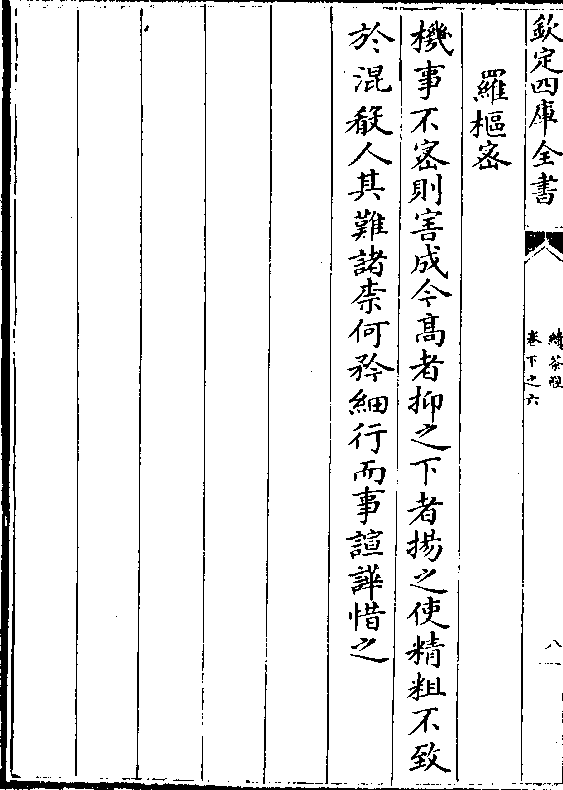 欽定四庫全書
續茶經
卷下之六
八
羅樞密
機事不密則害成今高者抑之下者揚之使精粗不致
於混殽人其難諸柰何矜細行而事諠譁惜之